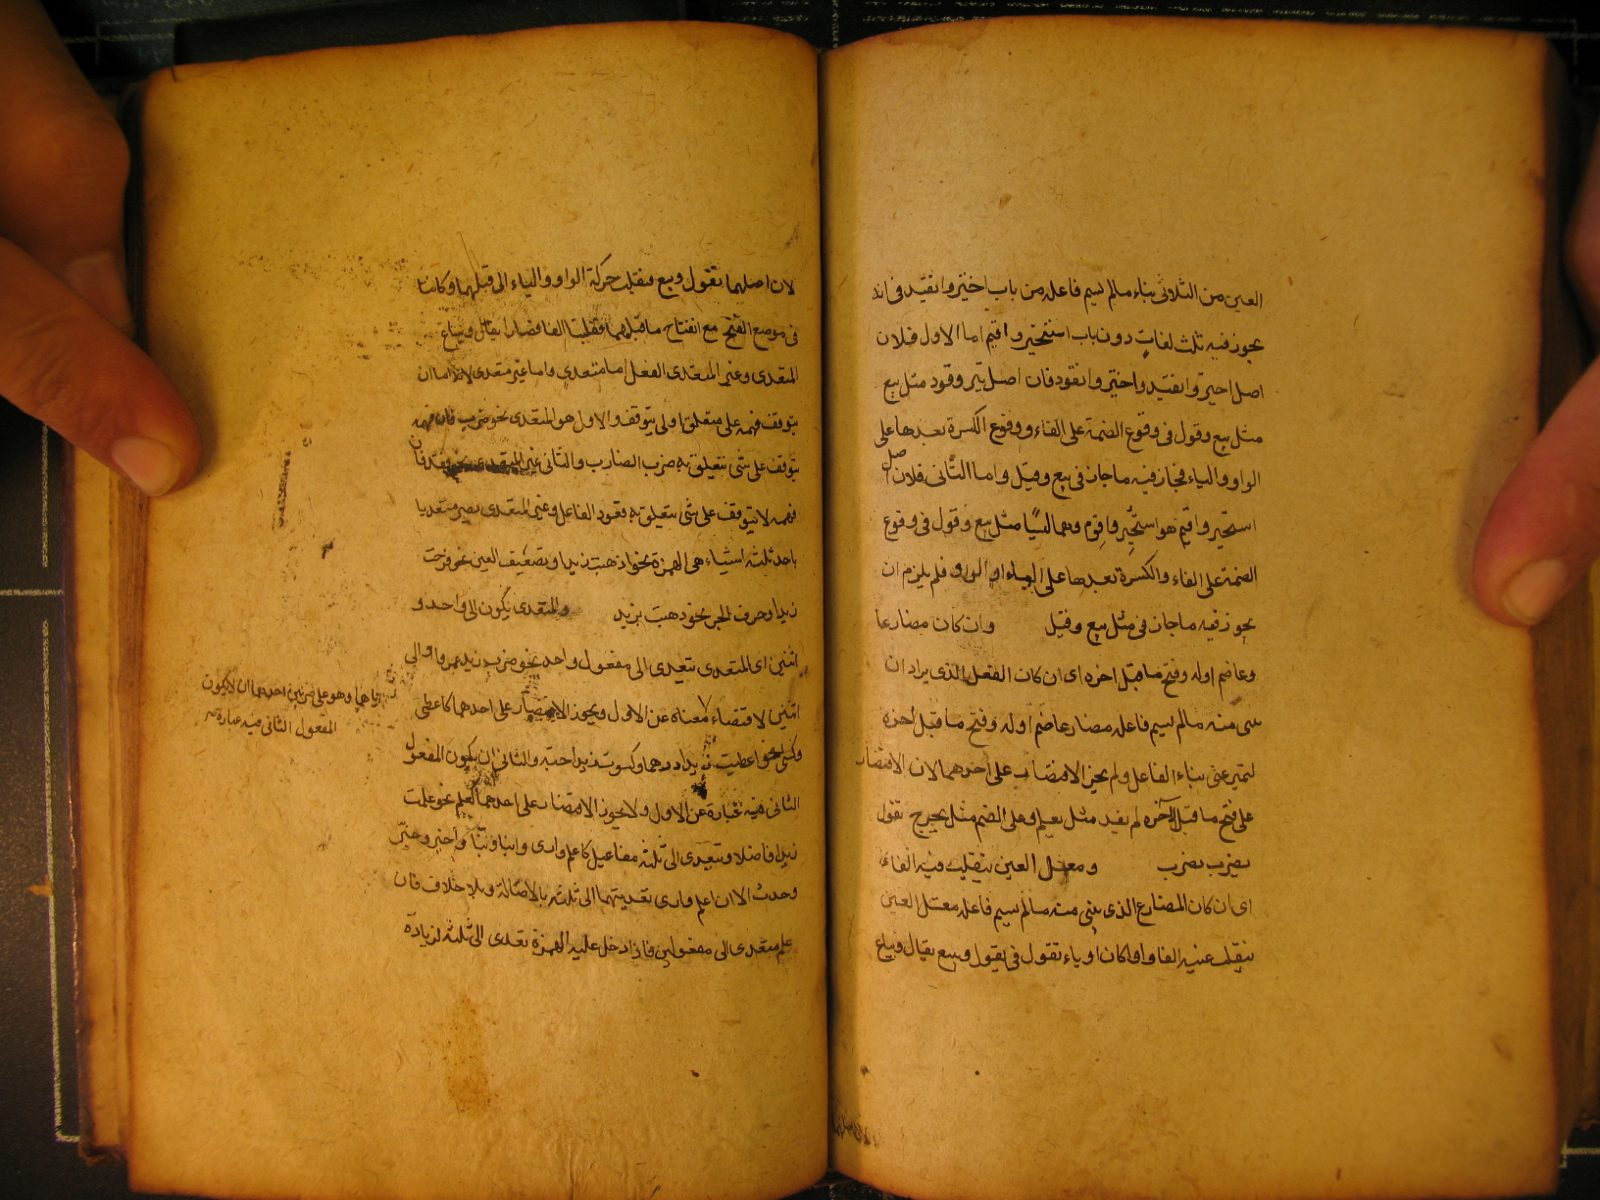 العين من الثلاثى بناء مالم يسم فاعله من باب اختير وانقيد فى انه
يجوز فيه ثلث لغات دون باب استخير واقيم اما الاول فلان
اصل اختير وانقيد واختير وانقود فان اصل تير وقود مثل بيع
مثل بيع وقول فى وقوع الضمة على الفاء ووقوع الكسرة بعدها على
الواو والياء فجاز فيه ما جاز فى بيع وقيل واما الثانى فلان اصل
استخير واقيم هو استخير واقوم وهما ليسا مثل بيع وقول فى وقوع
الضمة على الفاء والكسرة بعدها على الياء او الواو فلم يلزم ان
يجوز فيه ما جاز فى مثل بيع وقيل وان كان مضارعا
وعا ضم اوله وفتح ما قبل اخره اى ان كان الفعل الذى يراد ان
يبنى منه مالم يسم فاعله مضارعا ضم اوله وفتح ما قبل اخره
ليتميز عن بناء الفاعل ولم يجز الاقتصار على احدهما لان الاقتصار
على فتح ما قبل الآخر لم يفد مثل يعلم وعلى الضم مثل يخرج تقول
يضرب يضرب ومعتل العين ينقلب فيه الفاء
اى ان كان المضارع الذى بنى منه مالم يسم فاعله معتل العين
ينقلب عينه الفا واوا كان او ياء تقول فى يقول ويبيع يقال ويباع
لان اصلهما يقول ويبيع فنقلت حركة الواو والياء الى قبلهما وكانتا
فى موضع الفتح مع انفتاح ما قبلهما فقلبتا الفا فصارا يقال ويباع
المتعدى وغير المتعدى الفعل اما متعدى واما غير متعدى لانه اما ان
يتوقف فهمه على متعلق او لم يتوقف والاول هو المتعدى نحو ضرب فان فهمه
يتوقف على شئ يتعلق به ضرب الضارب والثانى غير المتعدى نحو قعد فان
فهمه لا يتوقف على شئ يتعلق به قعود الفاعل وغير المتعدى يصير متعديا
باحد ثلثة اشياء هى الهمزة نحو اذهبت زيدا وتضعيف العين نحو فرحت
زيدا وحرف الجر نحو ذهبت بزيد والمتعدى يكون الى واحد و
اثنين اى المتعدى يتعدى الى مفعول واحد نحو ضرب زيد عمروا والى
اثنين لاقتضاء معناه عن الاول ويجوز الاقتصار على احدهما كاعطى
وكسى نحو اعطيت زيدا درهما وكسوت زيدا جبة والثانى ان يكون المفعول
الثانى فيه عبارة عن الاول ولا يجوز الاقتصار على احدهما كعلم نحو علمت
زيدا فاضلا ويتعدى الى ثلثة مفاعيل كاعلم وارى وانبا ونبّا واخبر وخبّر
وحدث الا ان اعلم وارى تعديتهما الى ثلثة بالاصالة وبلا خلاف فان
علم متعدى الى مفعولين فاذا دخل عليه الهمزة تعدى الى ثلثة لزيادة
اياهما وهو على ضربين احدهما ان لا يكون
المفعول الثانى فيه عبارة